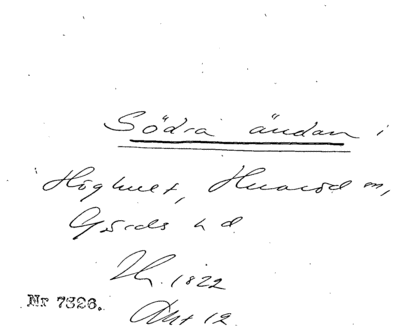 Södra ändan i
Höghult, Huaröd sn,
Gärds hd
1822
Nr 7326. Akt 12